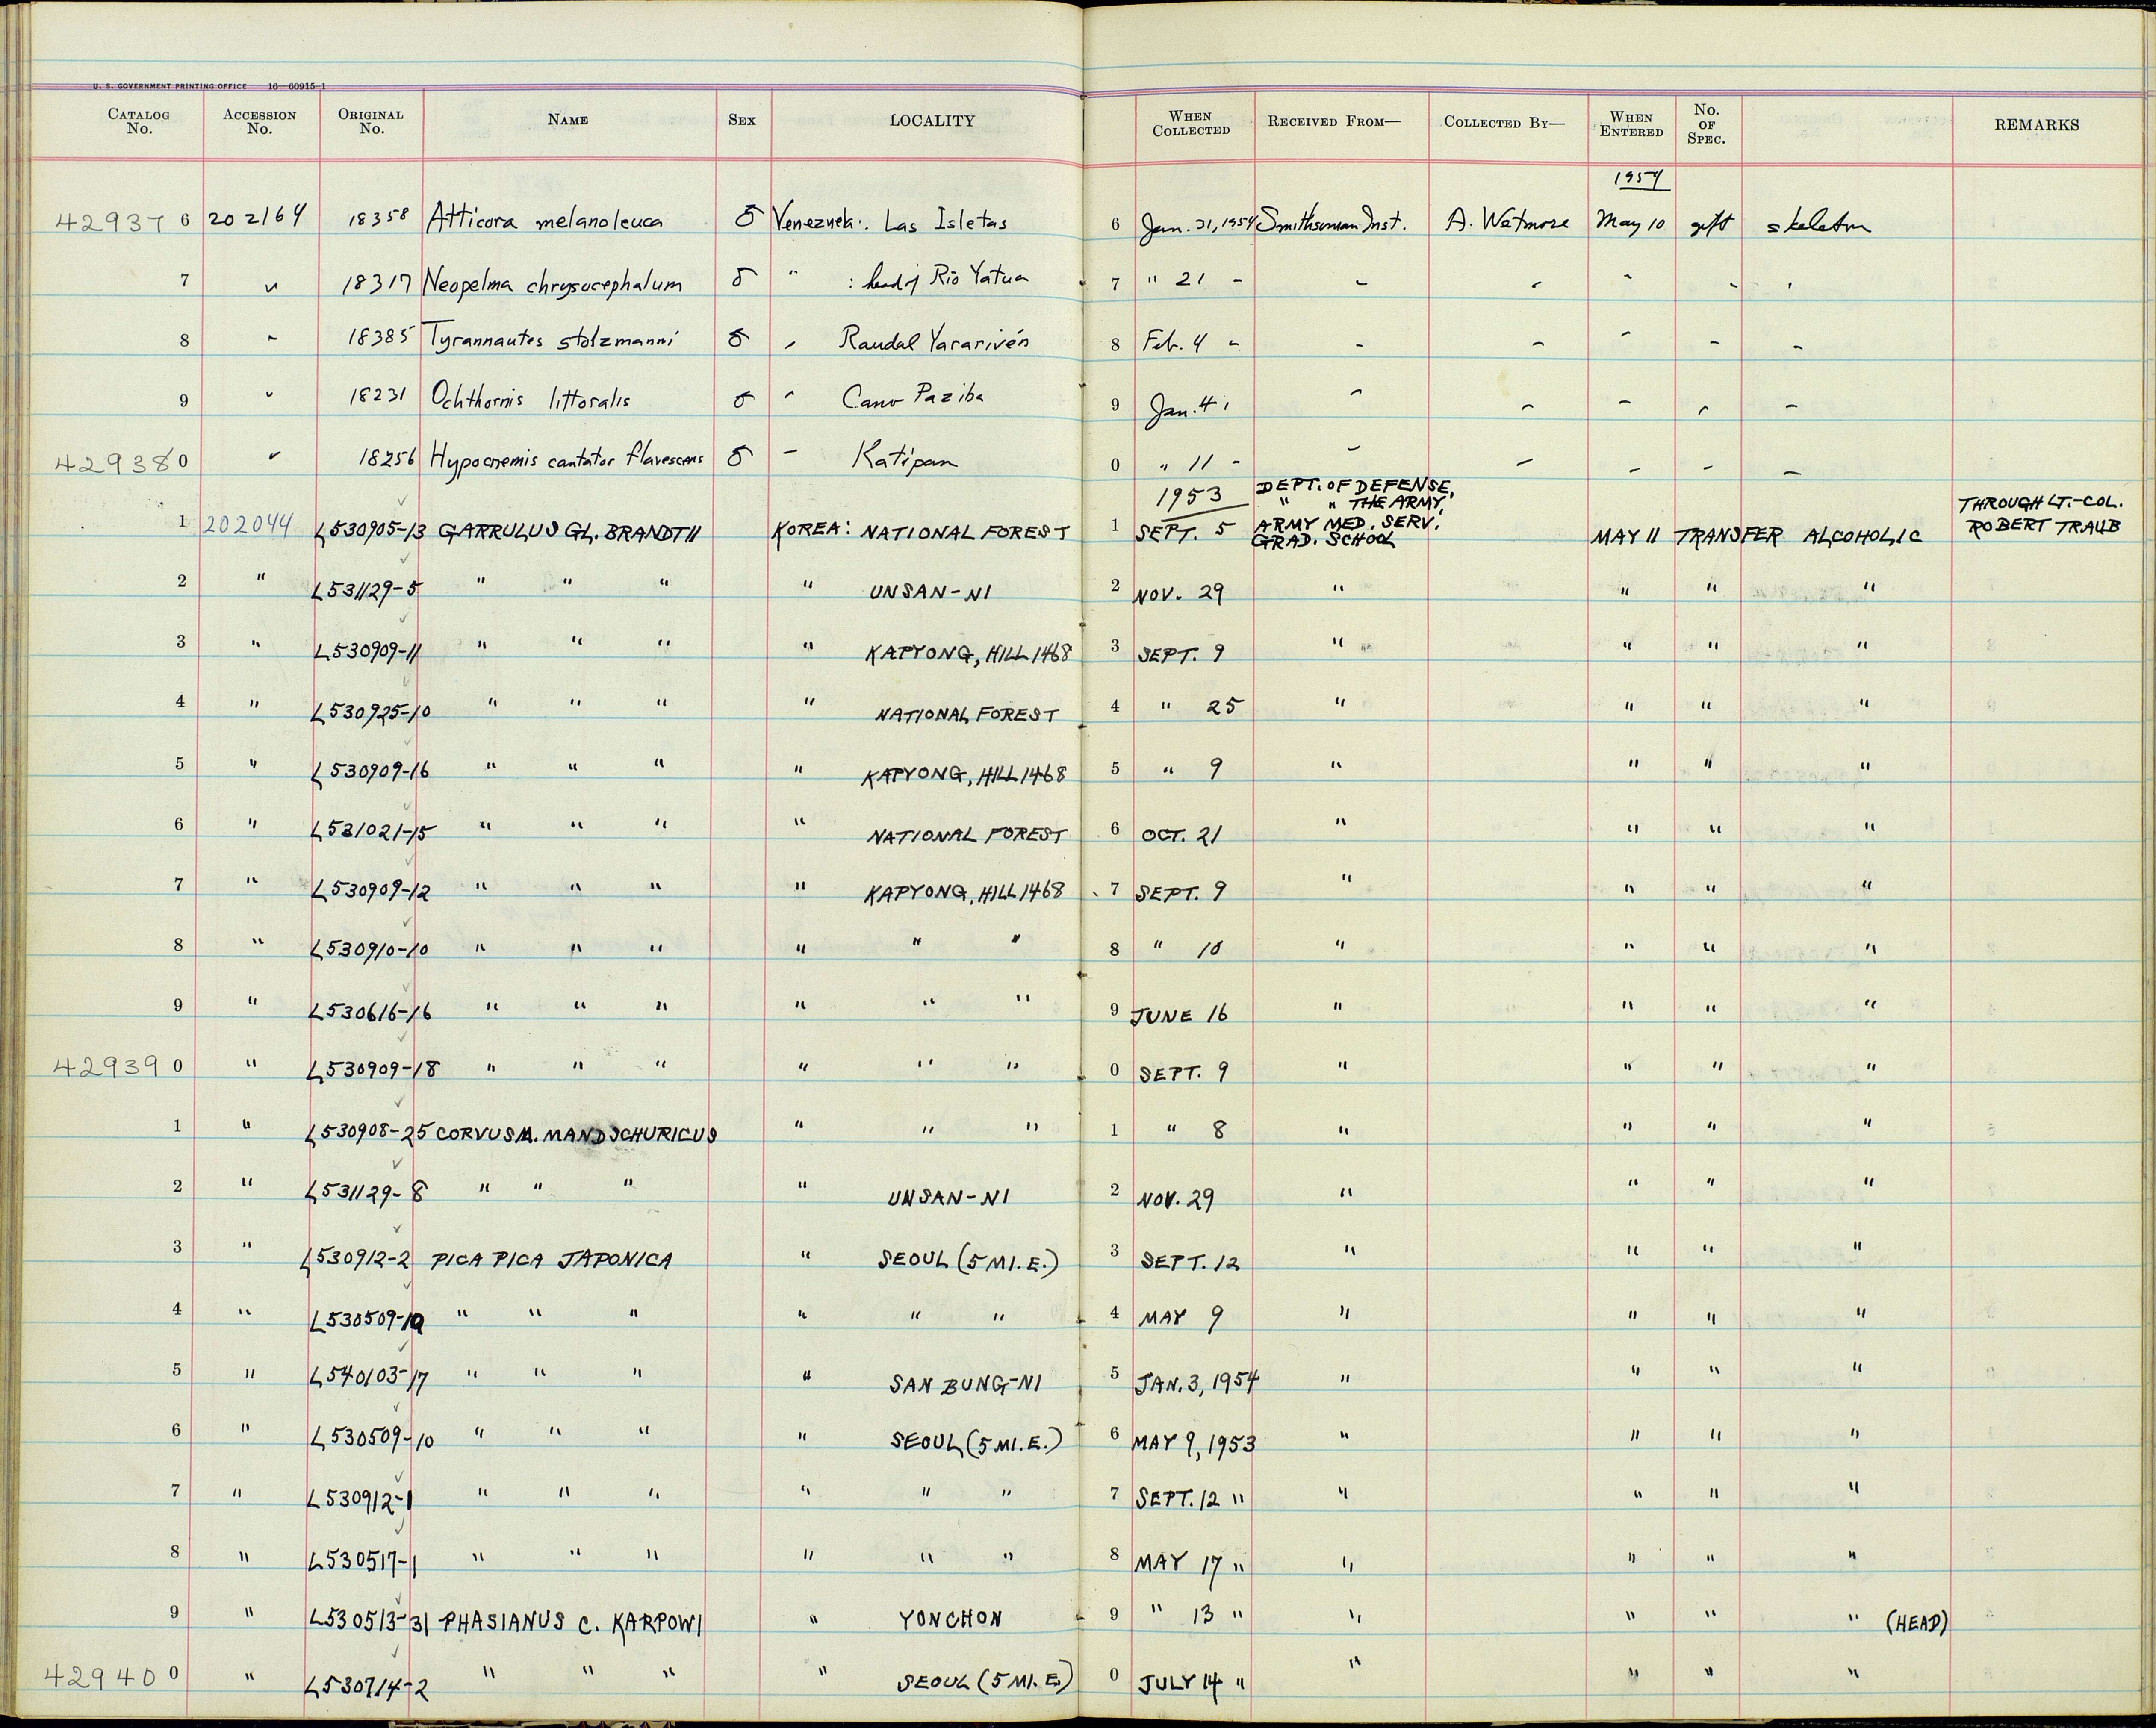 U. S. GOVERNMENT PRINTING OFFICE 16—60915-1
CATALOG No. ACCESSION No. ORIGINAL No. NAME SEX LOCALITY WHEN COLLECTED RECEIVED FROM— COLLECTED BY— WHEN ENTERED No. OF SPEC. REMARKS
1954
429376 202164 18358 Atticora melanoleuca ♂ Venezuela: Las Isletas 6 Jan. 31, 1954 Smithsonian Inst. A. Wetmore May 10 gift skeleton
7 " 18317 Neopelma chrysocephalum ♂ " : head of Rio Yatua 7 " 21 " " " " " "
8 " 18385 Tyrannautes stolzmanni ♂ " Raudal Yararivén 8 Feb. 4 " " " " " "
9 " 18231 Ochthornis littoralis ♂ " Cano Paziba 9 Jan. 4 " " " " " "
429380 " 18256 Hypocnemis cantator flavescens ♂ " Katipan 0 " 11 " " " " " "
1 202044 L530905-13 GARRULUS GL. BRANDTII KOREA: NATIONAL FOREST 1 1953 SEPT. 5 DEPT. OF DEFENSE, " " THE ARMY, ARMY MED. SERV. GRAD. SCHOOL MAY 11 TRANSFER ALCOHOLIC THROUGH LT.-COL. ROBERT TRAUB
2 " L531129-5 " " " " UNSAN-NI 2 NOV. 29 " " " "
3 " L530909-11 " " " " KAPYONG, HILL 1468 3 SEPT. 9 " " " "
4 " L530925-10 " " " " NATIONAL FOREST 4 " 25 " " " "
5 " L530909-16 " " " " KAPYONG, HILL 1468 5 " 9 " " " "
6 " L531021-15 " " " " NATIONAL FOREST 6 OCT. 21 " " " "
7 " L530909-12 " " " " KAPYONG, HILL 1468 7 SEPT. 9 " " " "
8 " L530910-10 " " " " " " 8 " 10 " " " "
9 " L530616-16 " " " " " " 9 JUNE 16 " " " "
429390 " L530909-18 " " " " " " 0 SEPT. 9 " " " "
1 " L530908-25 CORVUS M. MANDSCHURICUS " " " 1 " 8 " " " "
2 " L531129-8 " " " " UNSAN-NI 2 NOV. 29 " " " "
3 " L530912-2 PICA PICA JAPONICA " SEOUL (5 MI. E.) 3 SEPT. 12 " " " "
4 " L530509- " " " " " " 4 MAY 9 " " " "
5 " L540103-17 " " " " SAN BUNG-NI 5 JAN. 3, 1954 " " " "
6 " L530509-10 " " " " SEOUL (5 MI. E.) 6 MAY 9, 1953 " " " "
7 " L530912-1 " " " " " " 7 SEPT. 12 " " " " "
8 " L530517-1 " " " " " " 8 MAY 17 " " " " "
9 " L530513-31 PHASIANUS C. KARPOWI " YONCHON 9 " 13 " " " " " (HEAD)
429400 " L530714-2 " " " " SEOUL (5 MI. E.) 0 JULY 14 " " " " "